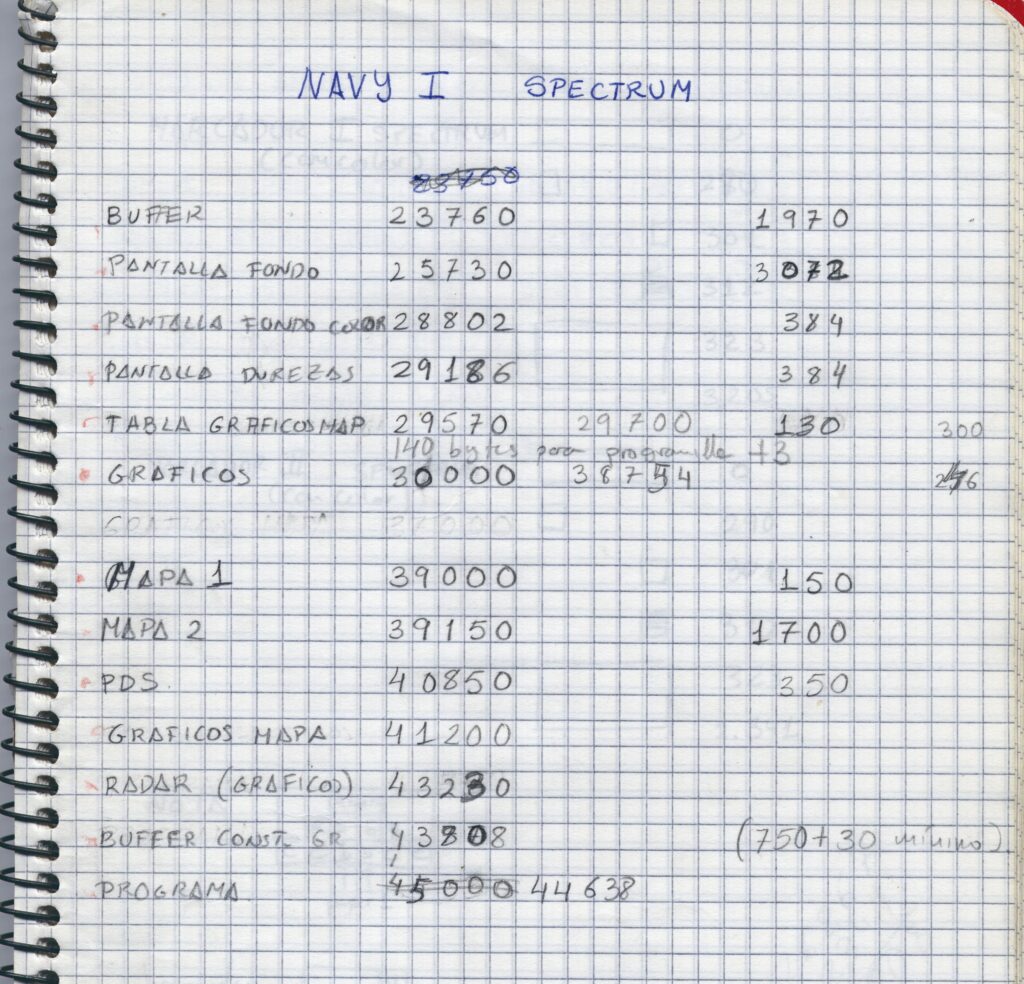 NAVY I SPECTRUM
23750
BUFFER 23760 1970
PANTALLA FONDO 25730 3072
PANTALLA FONDO COLOR 28802 384
PANTALLA DUREZAS 29186 384
TABLA GRAFICOS MAP 29570 29700 130 300
140 bytes para programilla +3
GRAFICOS 30000 38754
MAPA 1 39000 150
MAPA 2 39150 1700
PDS 40850 350
GRAFICOS MAPA 41200
RADAR (GRAFICOS) 43230
BUFFER CONST. GR 43808 (750+30 mínimo)
PROGRAMA 45000 44638